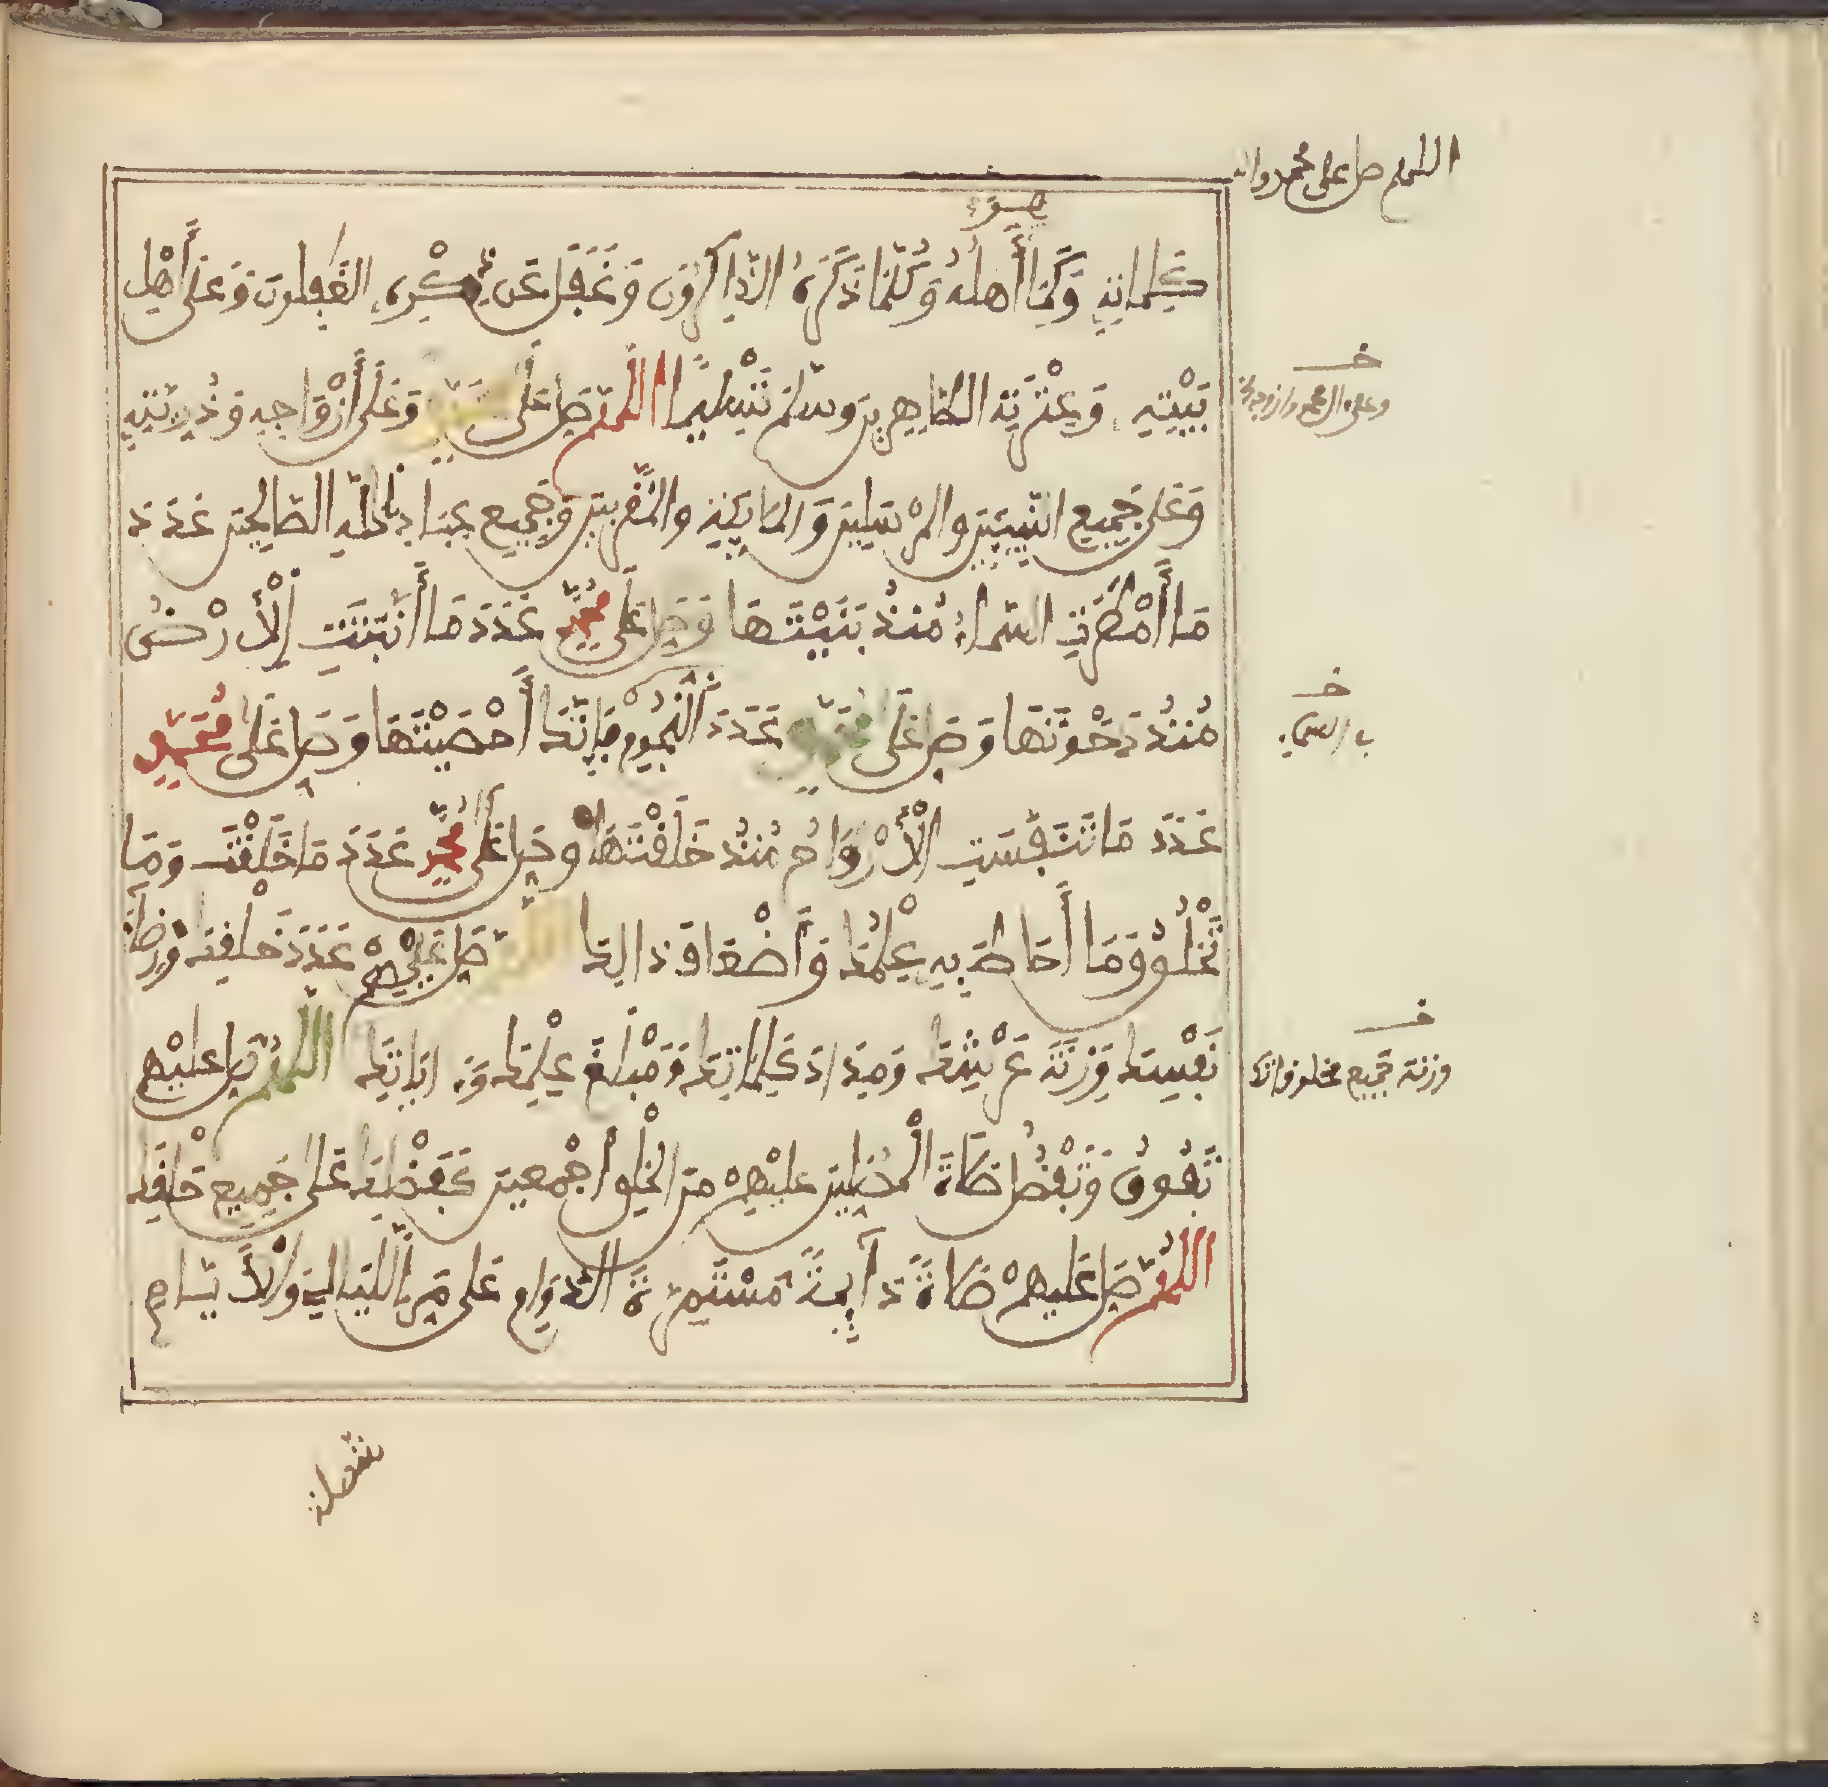 اللهم صل على محمد وآله
هو
كلماته وكما أهله وكلما ذكره الذاكرون وغفل عن ذكره الغفلون وعلى أهل
بيته وعترته الطاهرين وسلم تسليما اللهم صل على محمد وعلى أزواجه وذريته
خ
وعلى ال محمد وازواجه
وعلى جميع النبيين والمرسلين والملائكة والمقربين وجميع عباد الله الصالحين عدد
ما أمطرت السماء منذ بنيتها وصل على محمد عدد ما أنبتت الأرض
منذ دحوتها وصل على محمد عدد النجوم فإنك أحصيتها وصل على محمد
خ
عدد ما تنفست الأرواح منذ خلقتها وصل على محمد عدد ما خلقت وما
تخلق وما أحاط به علمك وأضعاف ذالك اللهم صل عليهم عدد خلقك ورضا
نفسك وزنة عرشك ومداد كلماتك ومبلغ علمك و اياتك اللهم صل عليهم
خ
وزنة جميع مخلوقاتك
تفوق وتفضل صلاة المصلين عليهم من الخلق أجمعين كفضلك على جميع خلقك
اللهم صل عليهم صلاة دآئمة مستمرة الدوام على مر الليالي والأيام
متصلة